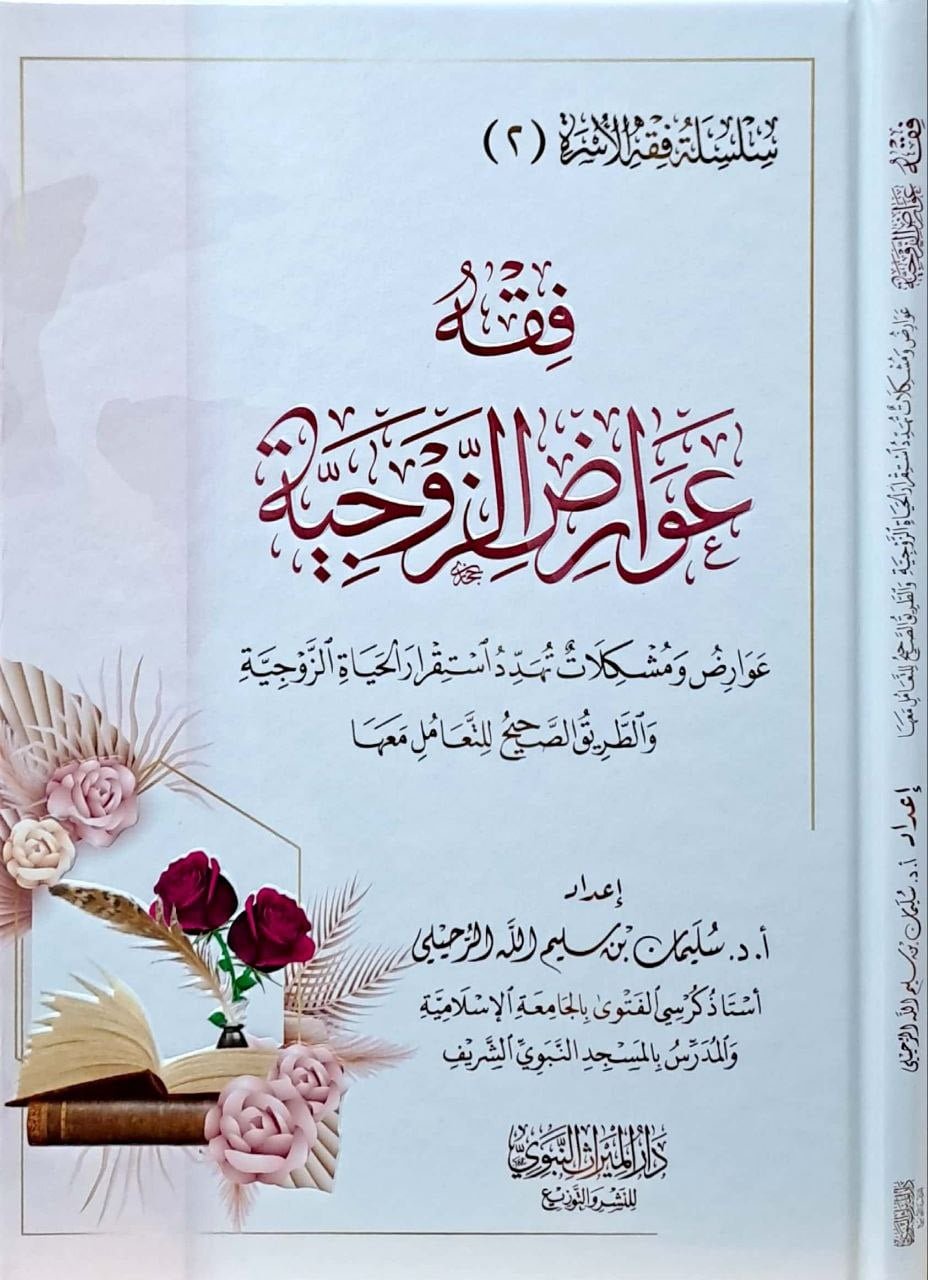 سِلْسِلَةُ فِقْهِ الْأُسْرَةِ (٢)
فِقْهُ
عَوَارِضِ الزَّوْجِيَّةِ
عَوَارِضُ وَمُشْكِلَاتٌ تُهَدِّدُ ٱسْتِقْرَارَ الْحَيَاةِ ٱلزَّوْجِيَّةِ
وَٱلطَّرِيقُ الصَّحِيحُ لِلتَّعَامُلِ مَعَهَا
إعداد
أ. د. سُلَيمَان بْن سليم اللَّه الرُّحَيْلي
أُسْتَاذُ كُرْسِي الفَتْوَى بِالجَامِعَةِ الإِسْلَامِيَّةِ
وَالمُدَرِّسُ بِالمَسْجِدِ النَّبَوِيِّ الشَّرِيفِ
دَارُ المِيرَاثِ النَّبَوِيِّ
لِلنَّشْرِ وَالتَّوْزِيعِ
فِقْهُ عَوَارِضِ الزَّوْجِيَّةِ
عَوَارِضُ وَمُشْكِلَاتٌ تُهَدِّدُ ٱسْتِقْرَارَ الحَيَاةِ الزَّوْجِيَّةِ وَالطَّرِيقُ الصَّحِيحُ لِلتَّعَامُلِ مَعَهَا
إعداد أ. د. سُلَيمَان بْن سليم اللَّه الرُّحَيْلي
دَارُ المِيرَاثِ النَّبَوِيِّ